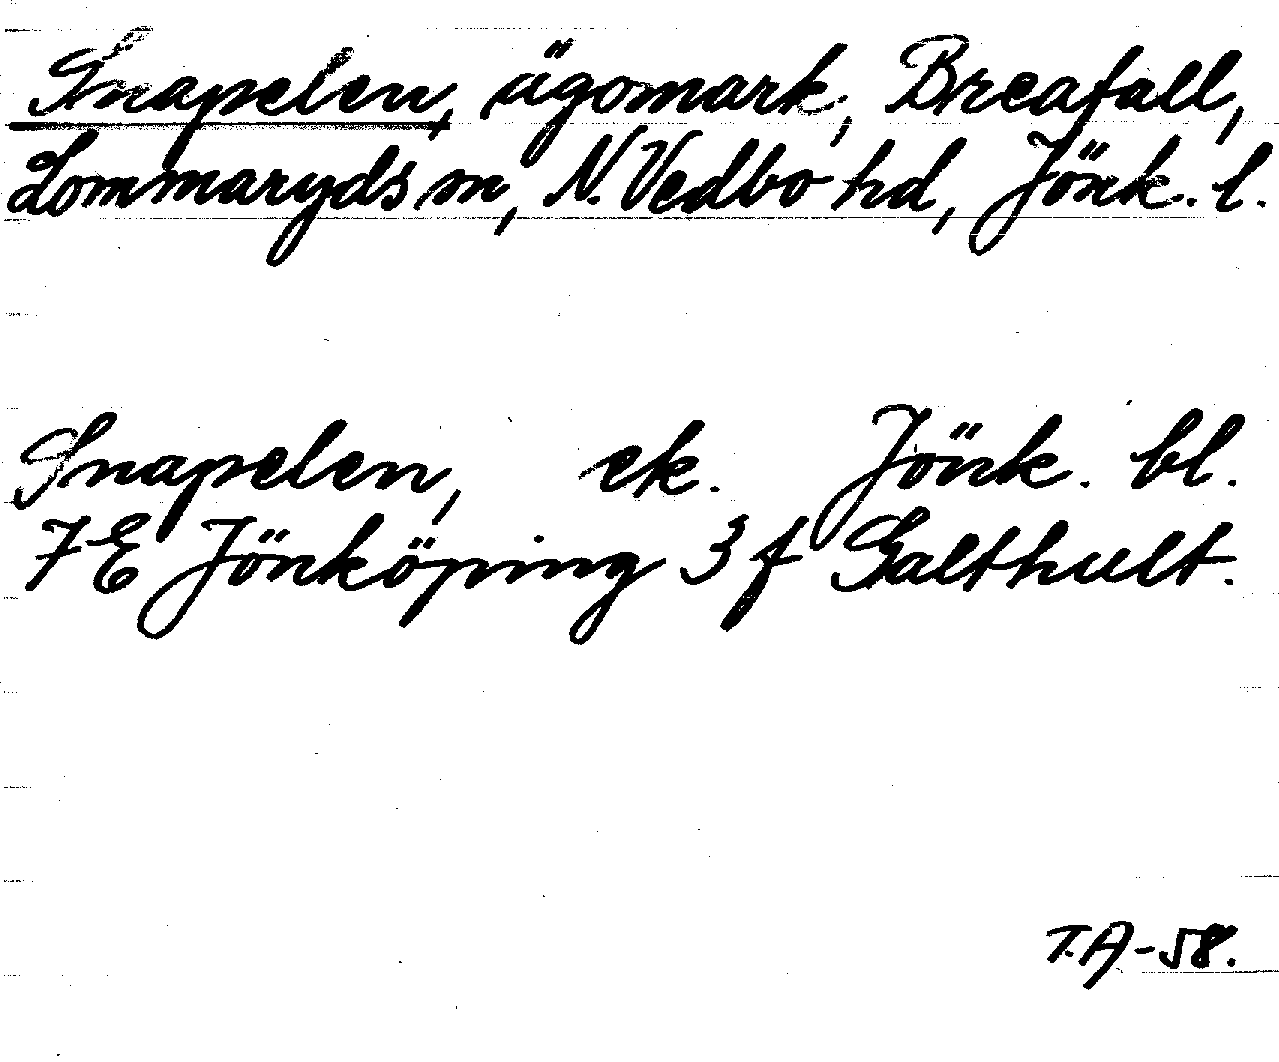 Snapelen, ägomark, Breafall,
Lommaryds sn, N. Vedbo hd, Jönk. l.
Snapelen, ek. Jönk. bl.
7E Jönköping 3f Galthult.
T.A-58.